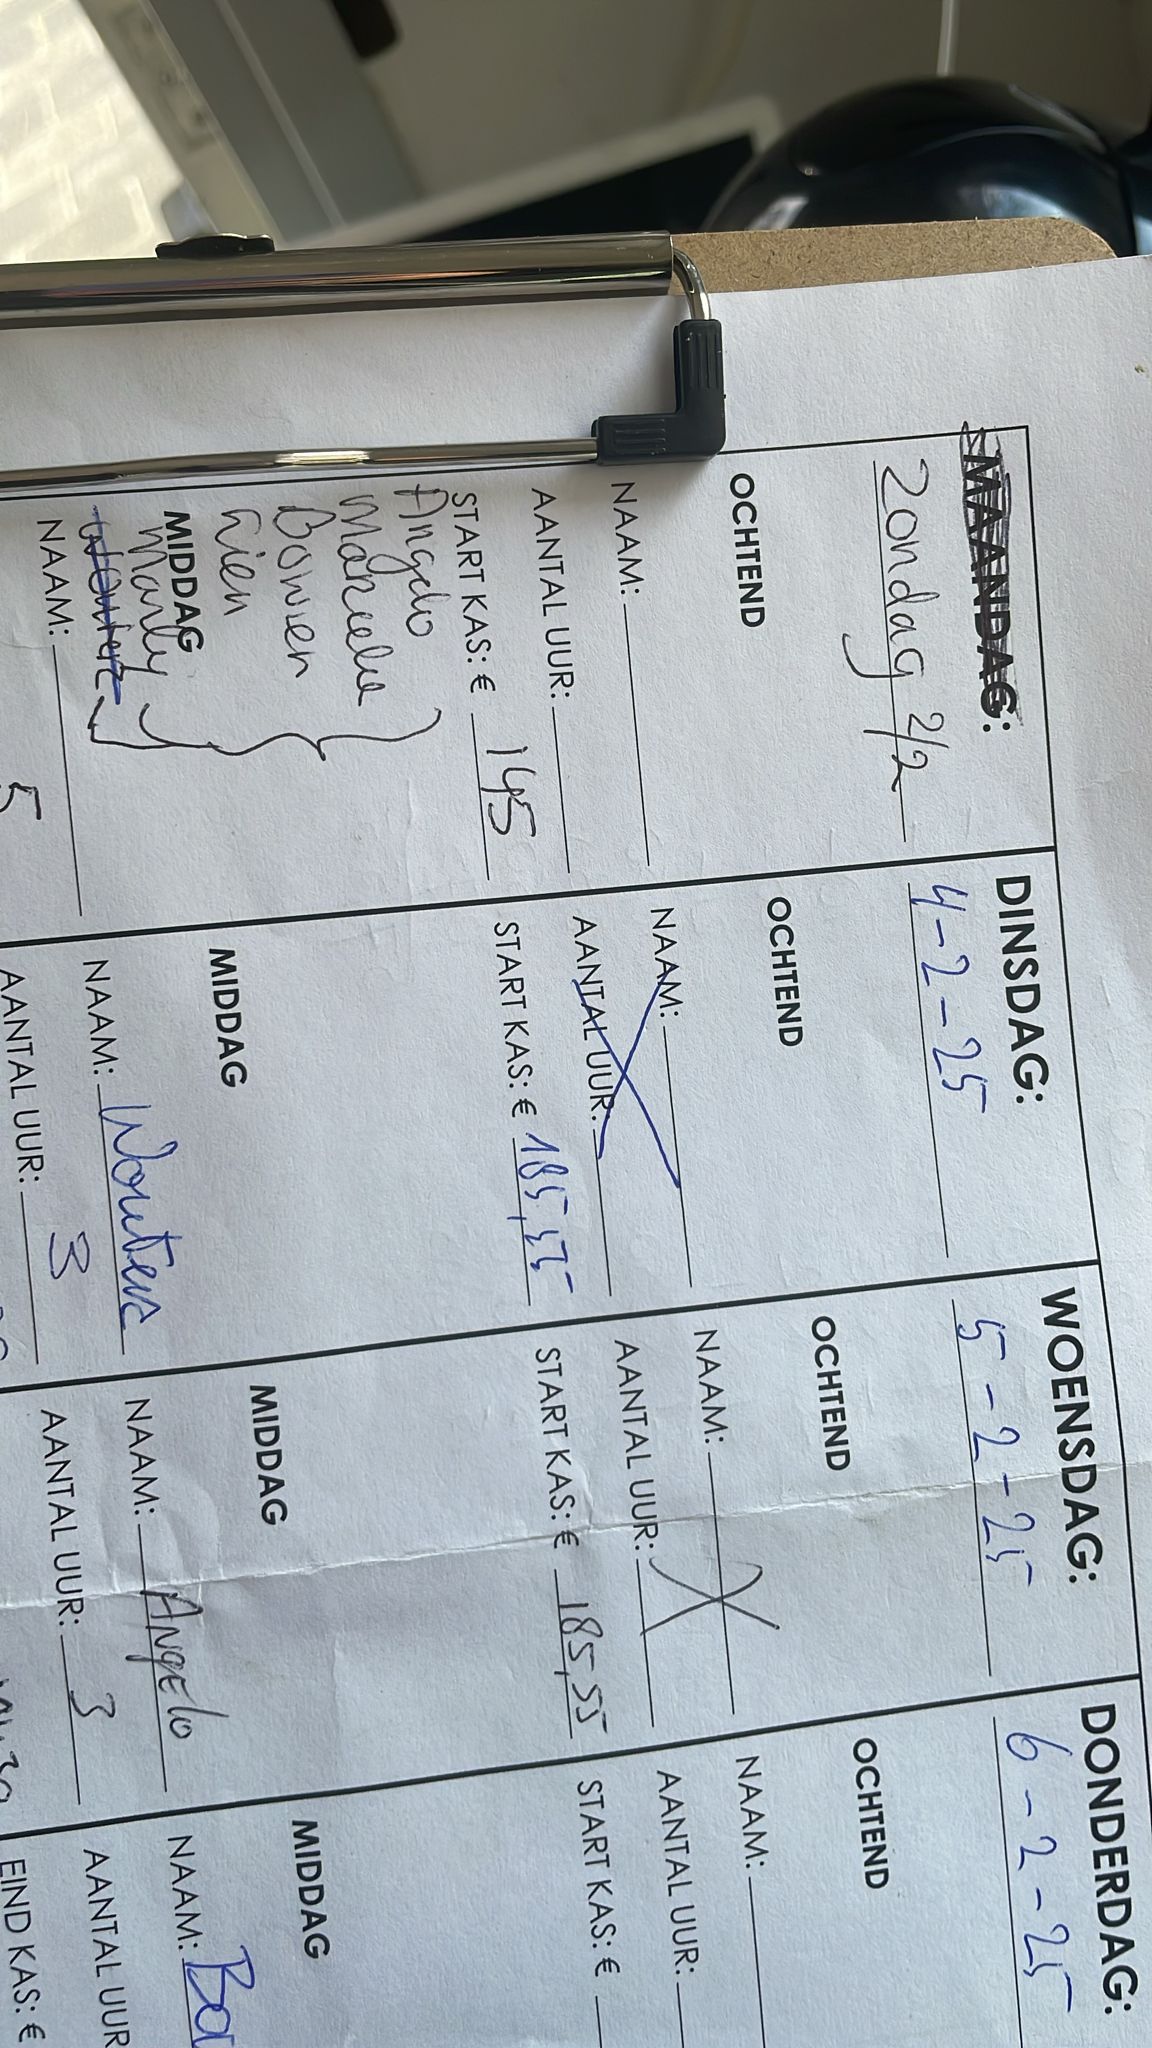 MAANDAG:
Zondag 2/2
OCHTEND
NAAM:
AANTAL UUR:
START KAS: € 145
Angelo
Marielle
Bowien
Lien
MIDDAG
Marly
Wouter
NAAM:
5
DINSDAG:
4-2-25
OCHTEND
NAAM:
AANTAL UUR:
START KAS: € 185,55
MIDDAG
NAAM: Wouters
AANTAL UUR: 3
WOENSDAG:
5-2-25
OCHTEND
NAAM:
AANTAL UUR:
START KAS: € 185,55
MIDDAG
NAAM: Angelo
AANTAL UUR: 3
DONDERDAG:
6-2-25
OCHTEND
NAAM:
AANTAL UUR:
START KAS: €
MIDDAG
NAAM: Bo
AANTAL UUR
EIND KAS: €